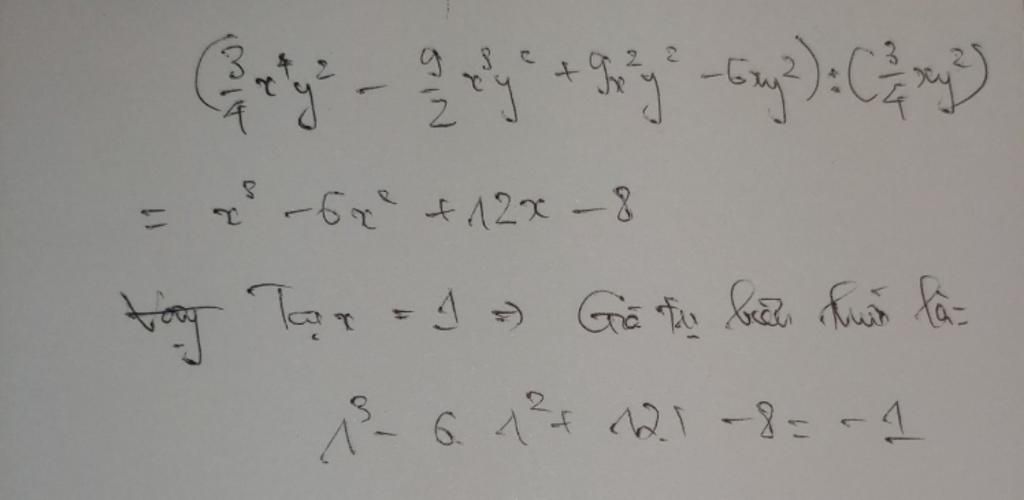 (3/4 x⁴y² - 9/2 x³y² + 9x²y² - 6xy²) : (3/4 xy²)
= x³ - 6x² + 12x - 8
Tại x = 1 => Giá trị biểu thức là:
1³ - 6. 1² + 12.1 - 8 = - 1